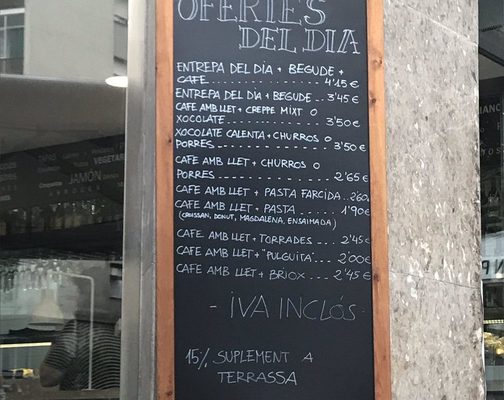 OFERTES
DEL DIA
ENTREPA DEL DÍA + BEGUDE +
CAFE ------------ 4'15€
ENTREPA DEL DÍA + BEGUDE --- 3'45€
CAFE AMB LLET + CREPPE MIXT O
XOCOLATE ------------ 3'50€
XOCOLATE CALENTA + CHURROS O
PORRES ------------ 3'50€
CAFE AMB LLET + CHURROS O
PORRES ------------ 2'65€
CAFE AMB LLET + PASTA FARCIDA .. 2'60€
CAFE AMB LLET + PASTA ----- 1'90€
(CROISSAN, DONUT, MAGDALENA, ENSAIMADA)
CAFE AMB LLET + TORRADES ---- 2'45€
CAFE AMB LLET + "PULGUITA" .. 2'00€
CAFE AMB LLET + BRIOX --- 2'45€
- IVA INCLÓS -
15% SUPLEMENT A
TERRASSA
TAPAS
VEGETAR
JAMÓN